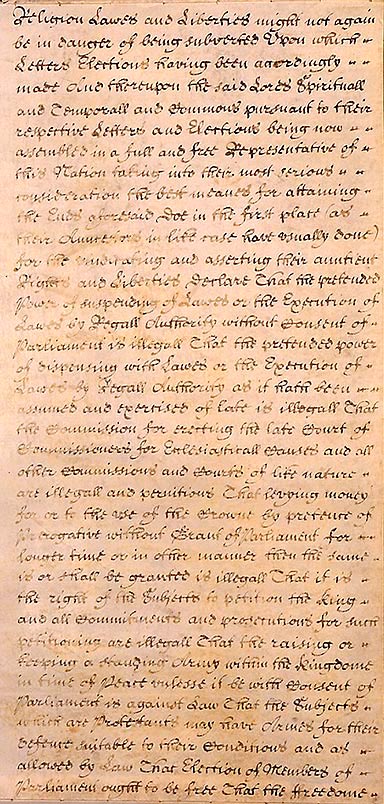 Religion Lawes and Liberties might not again
be in danger of being subverted Upon which
Letters Elections having been accordingly
made And thereupon the said Lords Spirituall
and Temporall and Commons pursuant to their
respective Letters and Elections being now
assembled in a full and free Representative of
this Nation taking into their most serious
consideration the best meanes for attaining
the Ends aforesaid Doe in the first place (as
their Auncestors in like case have usually done)
for the vindicating and asserting their auntient
Rights and Liberties, Declare That the pretended
Power of suspending of Lawes or the Execution of
Lawes by Regall Authority without Consent of
Parliament is illegall That the pretended power
of dispensing with Lawes or the Execution of
Lawes by Regall Authority as it hath been
assumed and exercised of late is illegall That
the Commission for erecting the late Court of
Commissioners for Ecclesiasticall Causes and all
other Commissions and Courts of like nature
are illegall and pernitious That levying money
for or to the use of the Crowne by pretence of
Prerogative without Grant of Parliament for
longer time or in other manner then the same
is or shall be granted is illegall That it is
the right of the Subjects to petition the King
and all Commitments and prosecutions for such
petitioning are illegall That the raising or
keeping a standing Army within the Kingdome
in time of Peace unlesse it be with Consent of
Parliament is against Law That the Subjects
which are Protestants may have Armes for their
defence suitable to their Conditions and as
allowed by Law That Election of Members of
Parliament ought to be free That the freedome